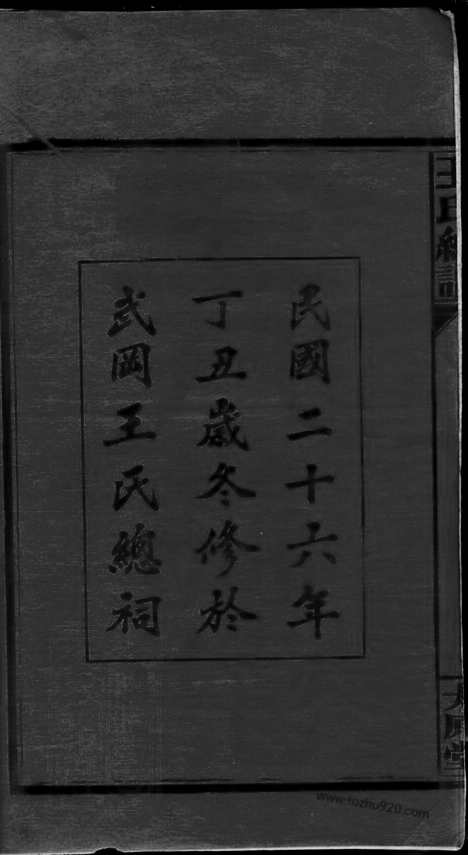 民國二十六年
丁丑歲冬修於
武岡王氏總祠
王氏總譜
太原堂
www.tozhu920.com